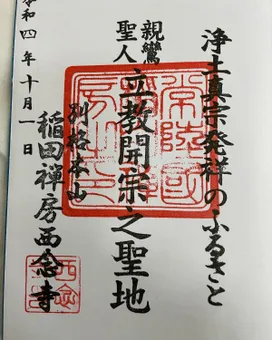 浄土真宗発祥のふるさと
親鸞聖人
立教開宗之聖地
別格本山
稲田禅房西念寺
令和四年十月一日
西念寺